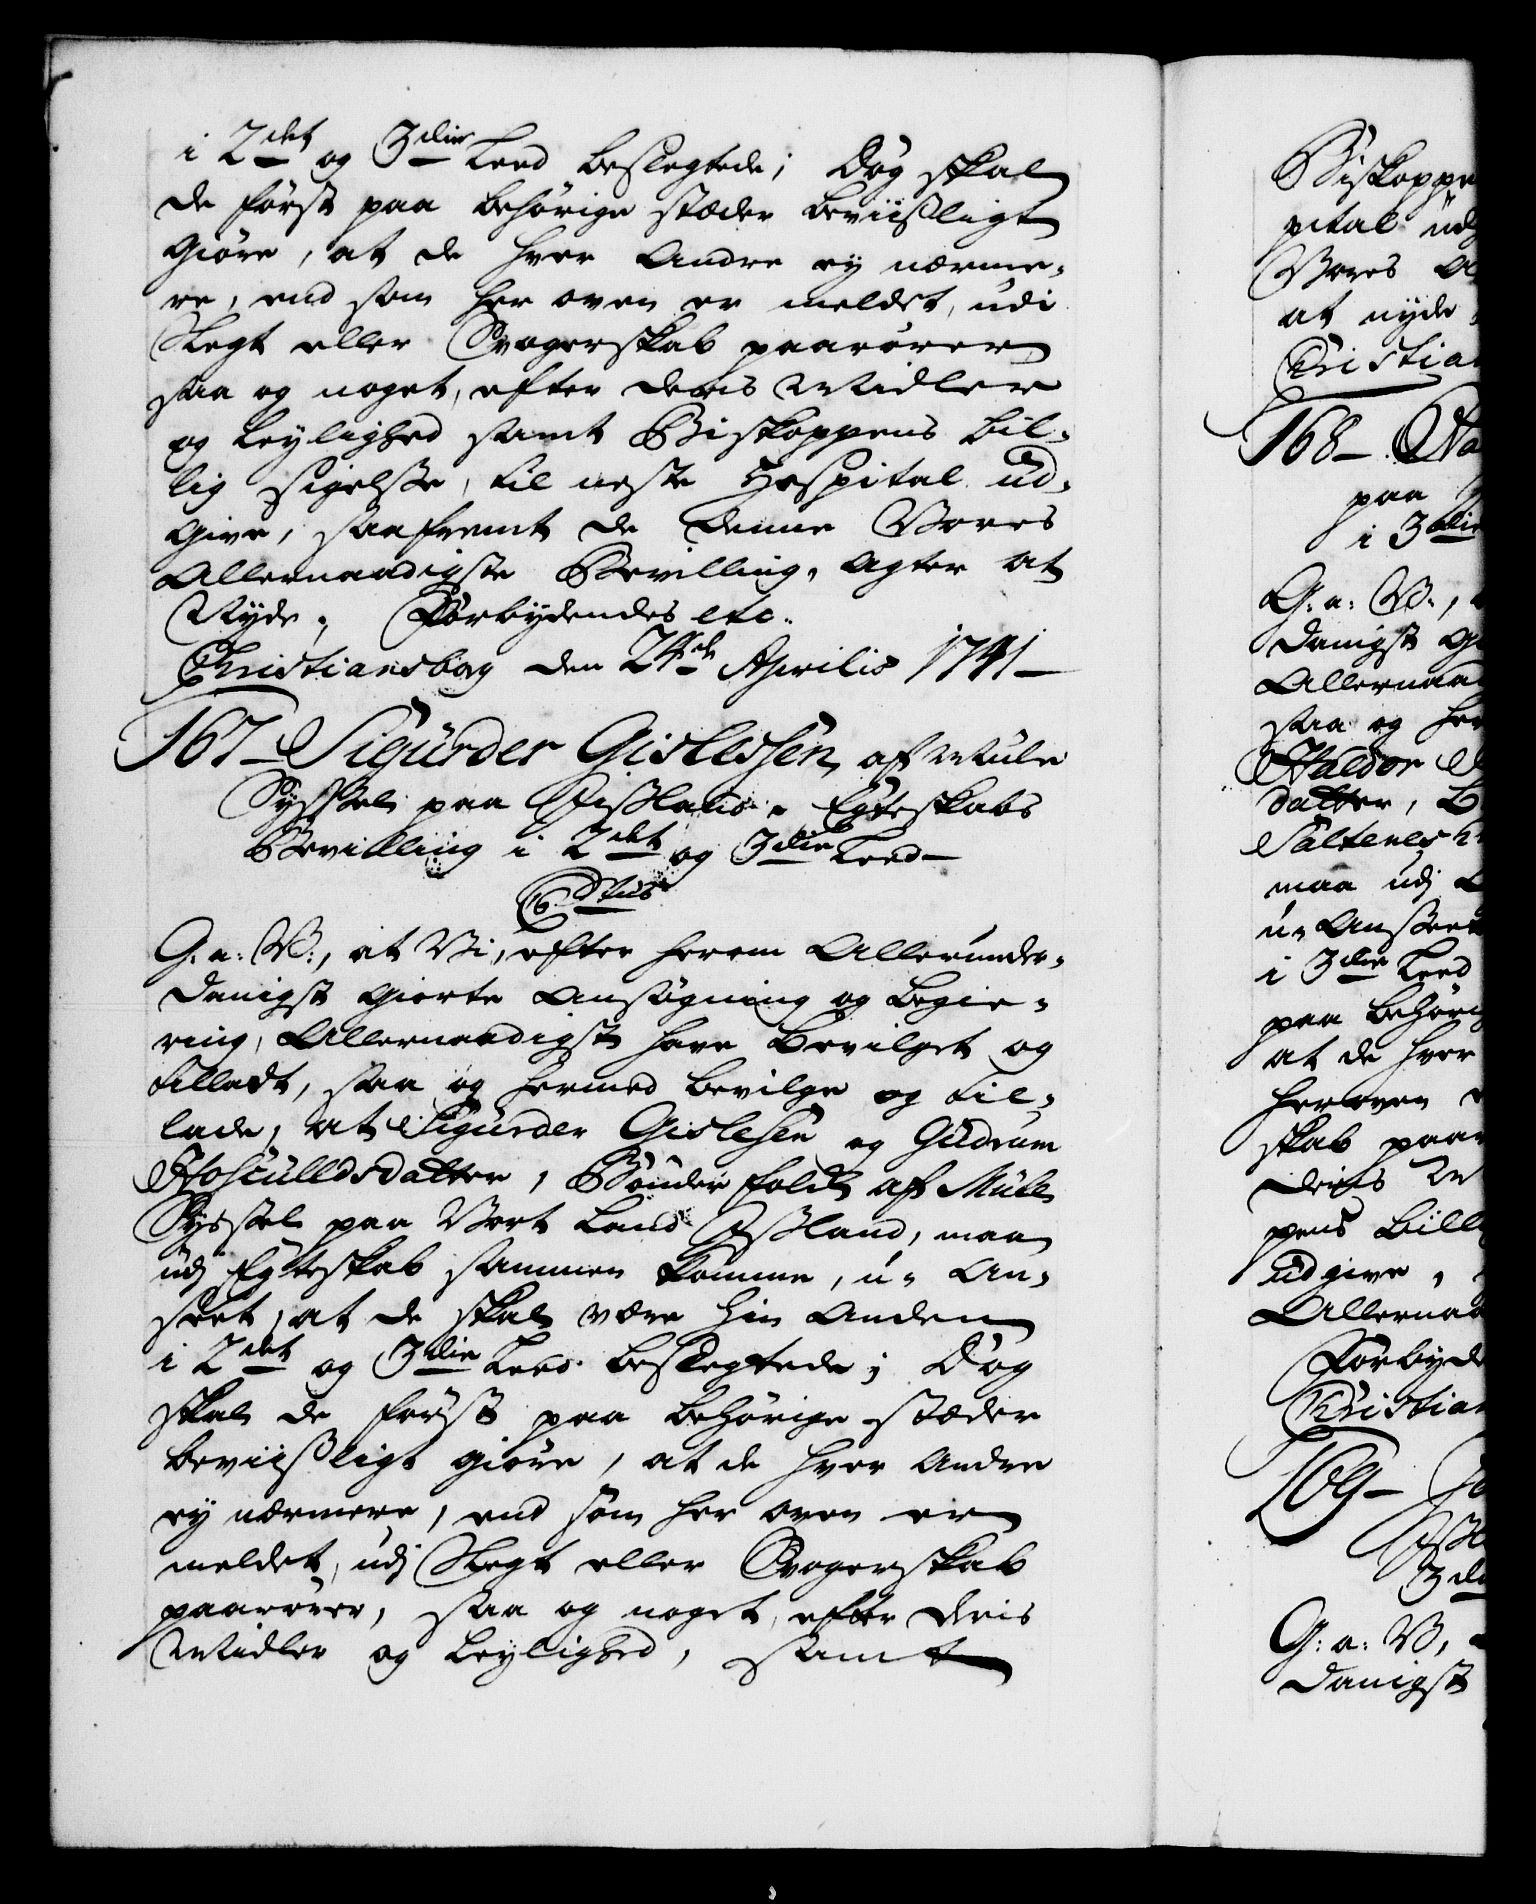 i 2det og 3die Leed beslegtede; Dog skal
de først paa behørige stæder beviisligt
giøre, at de hver Andre ey nærme-
re, end som her oven er meldet, udi
Slegt eller Svogerskab paarører
saa og noget, efter deris Midler
og Leylighed samt Biskoppens bil-
lig sigelse, til neste Hospital ud-
give, saafremt de denne Vores
Allernaadigste Bevilling, agter at
Nyde, Forbydendes etc.
Christiansborg den 24de Aprilis 1741
167 Sigurder Gislessen, af Mule
Syssel paa Iisland, Egteskabs
Bevilling i 2det og 3die Leed
G. a: V:, at Vi, efter herom Allerunder-
danigst giorte Ansøgning og begie-
ring, Allernaadigst have bevilget og
tilladt, saa og hermed bevilge og til-
lade, at Sigurder Gislesen og Gudrun
Hosculldsdatter, Bønder folck af Mule
Syssel paa Vort Land Iisland, maa
udj Egteskab sammen komme, u- An-
seet, at de skal være hin Anden
i 2det og 3die Leed beslegtede; Dog
skal de først paa behørige stæder
beviisligt giøre, at de hver Andre
ey nærmere, end som her oven er
meldet, udj Slegt eller Svogerskab
paarører, saa og noget, efter deris
Midler og Leylighed, samt
Biskoppe
pital ud
Vores
at nyde
Christian
168
paa
i 3die
G: a: V:,
danigst
Allernaa
saa og her
Haldor
datter,
maa udj
u- Anseet
i 3die Leed
paa behørig
at de hver
her oven
skab paar
deris
pens bill
udgive,
Allernaa
Forbyde
Christian
169
3die
G: a: V,
danigst